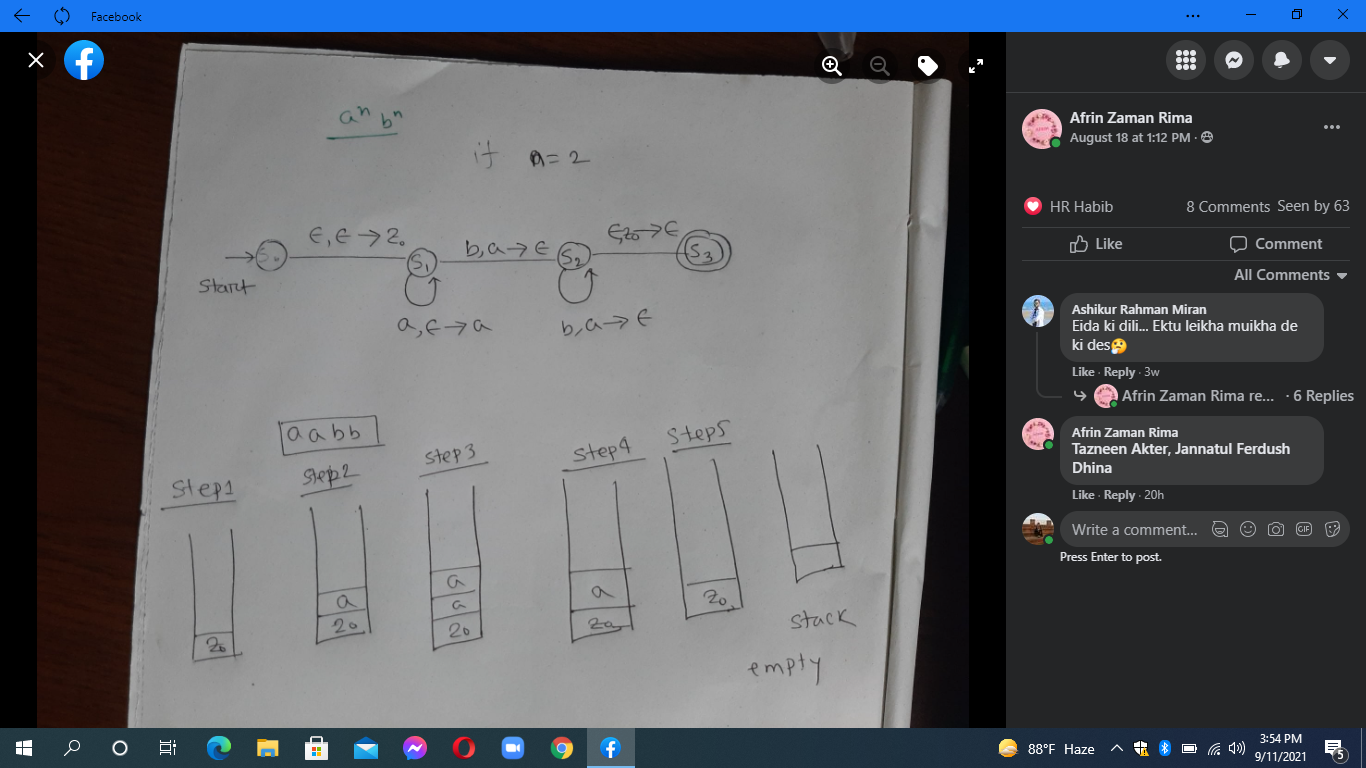 Facebook
aⁿ bⁿ
if n = 2
ϵ, ϵ → Z₀
b, a → ϵ
ϵ, z₀ → ϵ
S₀
S₁
S₂
S₃
Start
a, ϵ → a
b, a → ϵ
a a b b
Step1
Step2
Step3
Step4
Step5
Z₀
a
Z₀
a
a
Z₀
a
Z₀
Z₀
stack
empty
Afrin Zaman Rima
August 18 at 1:12 PM ·
HR Habib
8 Comments Seen by 63
Like
Comment
All Comments
Ashikur Rahman Miran
Eida ki dili... Ektu leikha muikha de
ki des🤔
Like · Reply · 3w
Afrin Zaman Rima re... · 6 Replies
Afrin Zaman Rima
Tazneen Akter, Jannatul Ferdush
Dhina
Like · Reply · 20h
Write a comment...
GIF
Press Enter to post.
88°F Haze
3:54 PM
9/11/2021
5